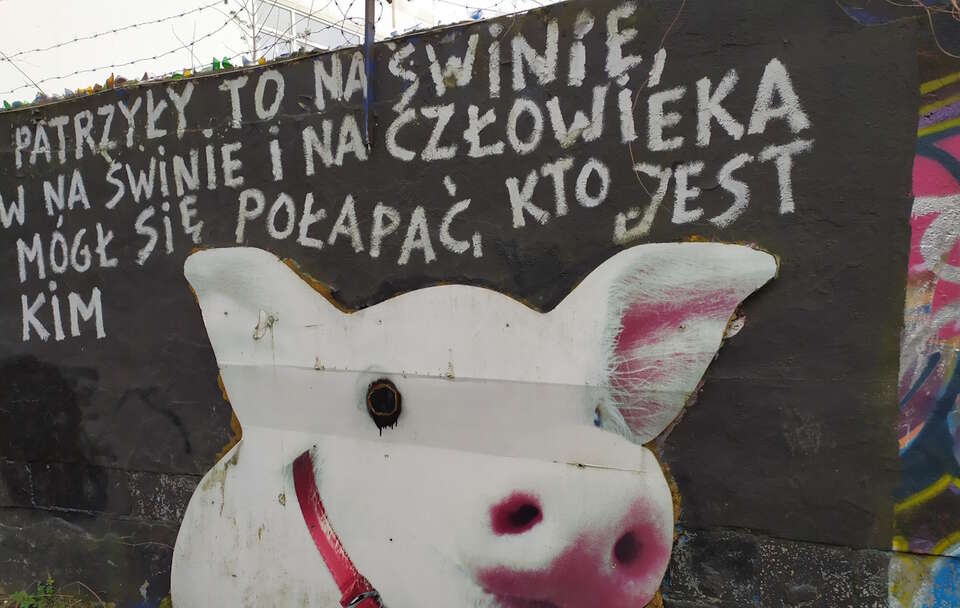 PATRZYŁY TO NA ŚWINIĘ,
W NA ŚWINIE I NA CZŁOWIEKA
MÓGŁ SIĘ POŁAPAĆ, KTO JEST
KIM